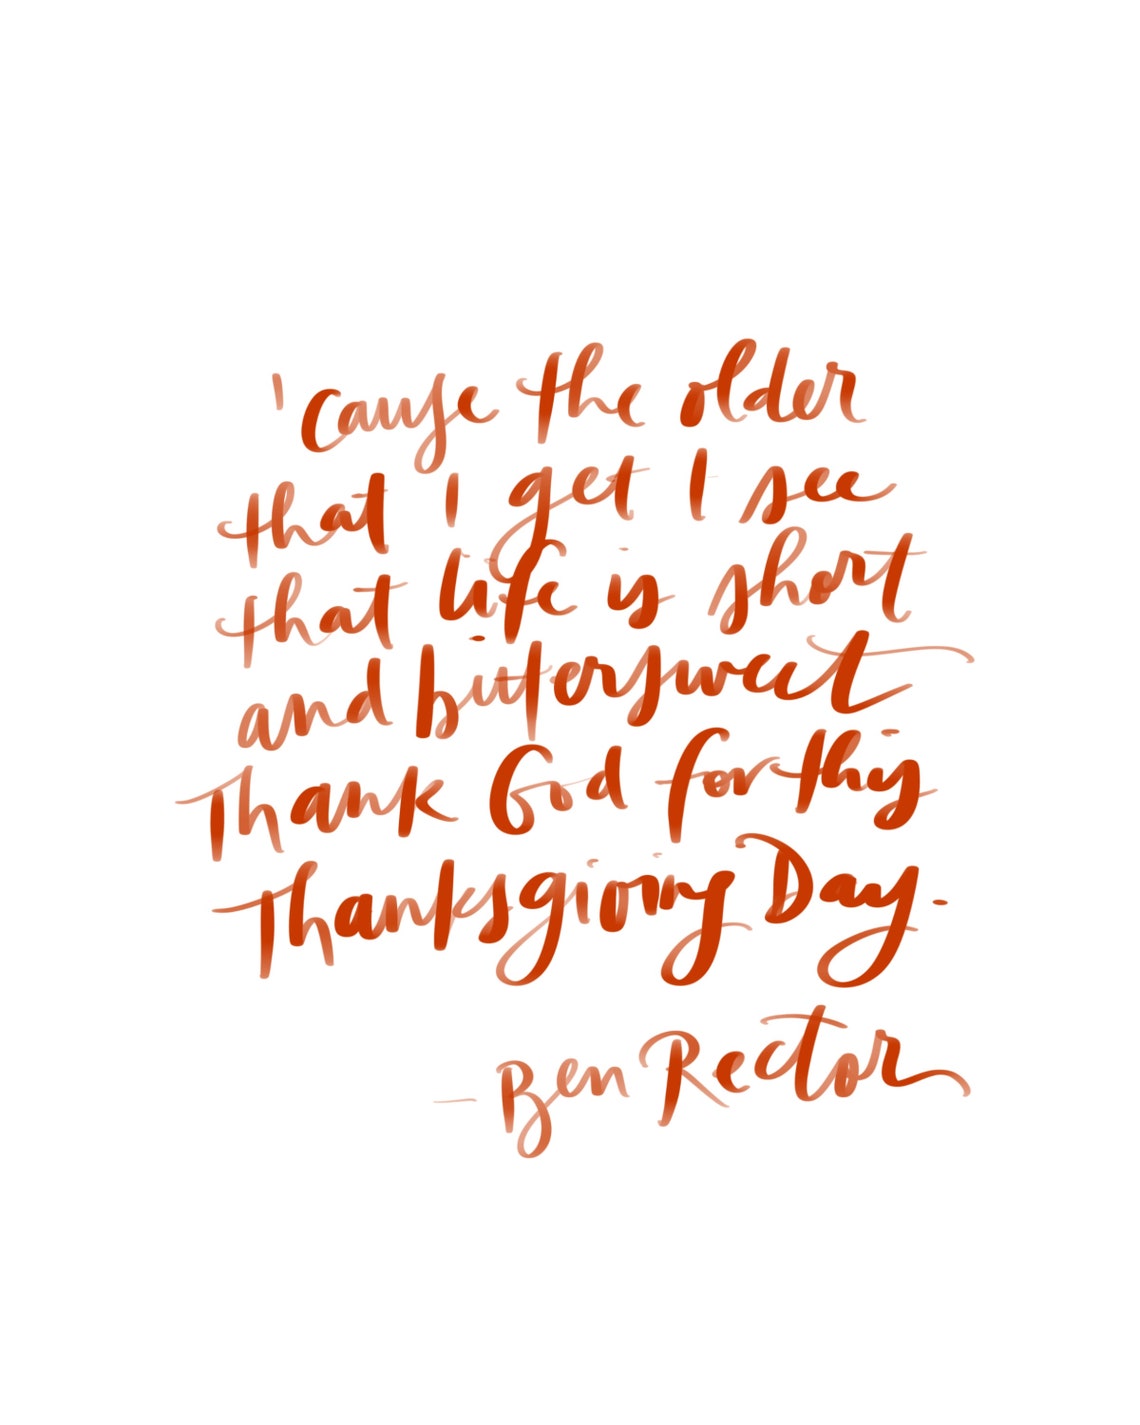 'cause the older
that I get I see
that life is short
and bittersweet
Thank God for this
Thanksgiving Day.
- Ben Rector